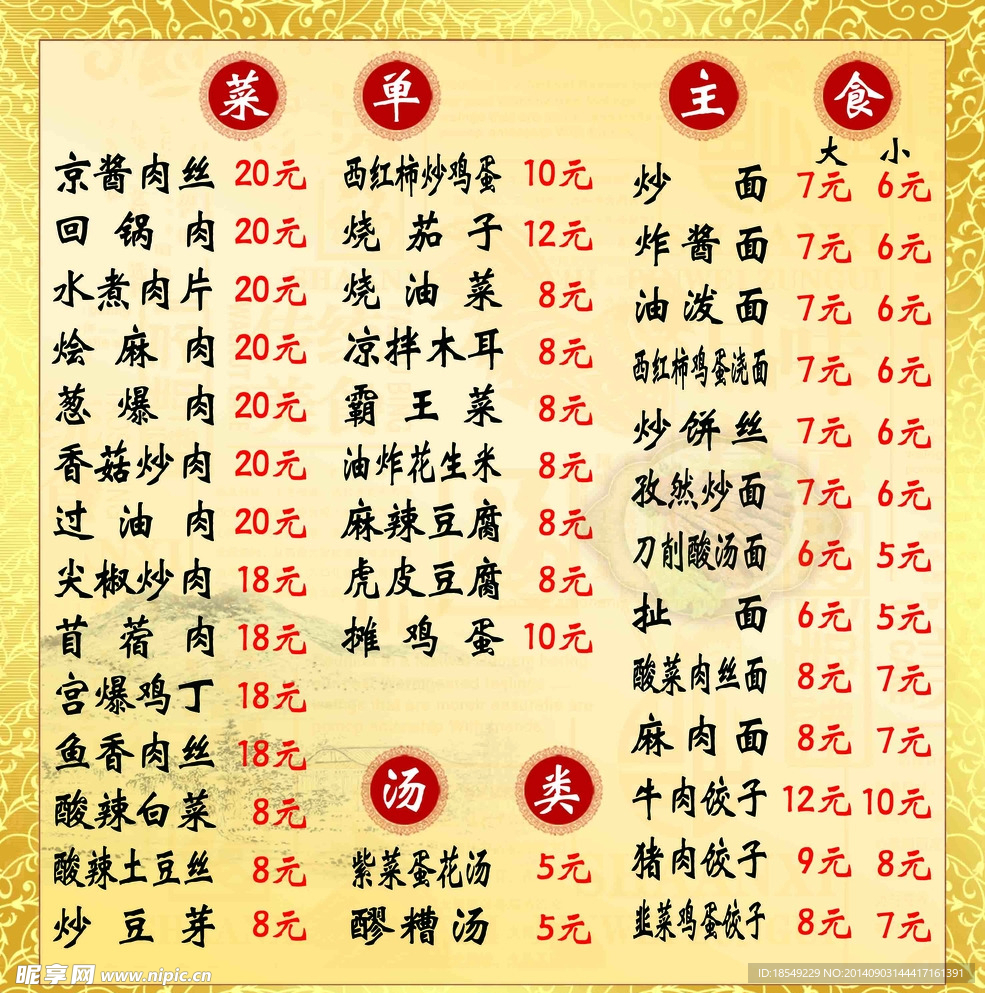 菜单
京酱肉丝 20元
回锅肉 20元
水煮肉片 20元
烩麻肉 20元
葱爆肉 20元
香菇炒肉 20元
过油肉 20元
尖椒炒肉 18元
苜蓿肉 18元
宫爆鸡丁 18元
鱼香肉丝 18元
酸辣白菜 8元
酸辣土豆丝 8元
炒豆芽 8元
西红柿炒鸡蛋 10元
烧茄子 12元
烧油菜 8元
凉拌木耳 8元
霸王菜 8元
油炸花生米 8元
麻辣豆腐 8元
虎皮豆腐 8元
摊鸡蛋 10元
汤类
紫菜蛋花汤 5元
醪糟汤 5元
主食
大 小
炒面 7元 6元
炸酱面 7元 6元
油泼面 7元 6元
西红柿鸡蛋浇面 7元 6元
炒饼丝 7元 6元
孜然炒面 7元 6元
刀削酸汤面 6元 5元
扯面 6元 5元
酸菜肉丝面 8元 7元
麻肉面 8元 7元
牛肉饺子 12元 10元
猪肉饺子 9元 8元
韭菜鸡蛋饺子 8元 7元
昵享网 www.nipic.cn
ID:18549229 NO:20140903144417161391